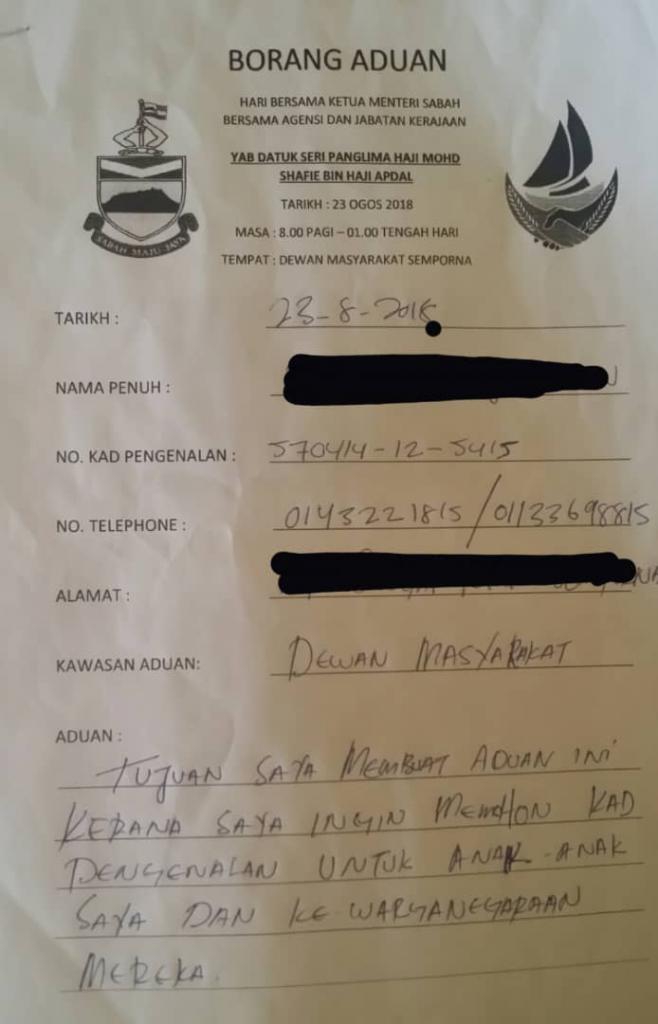 BORANG ADUAN
HARI BERSAMA KETUA MENTERI SABAH
BERSAMA AGENSI DAN JABATAN KERAJAAN
YAB DATUK SERI PANGLIMA HAJI MOHD
SHAFIE BIN HAJI APDAL
TARIKH : 23 OGOS 2018
MASA : 8.00 PAGI – 01.00 TENGAH HARI
TEMPAT : DEWAN MASYARAKAT SEMPORNA
SABAH MAJU JAYA
TARIKH : 23-8-2018
NAMA PENUH :
NO. KAD PENGENALAN : 570414-12-5415
NO. TELEPHONE : 0143221815 / 01133698815
ALAMAT :
KAWASAN ADUAN: DEWAN MASYARAKAT
ADUAN :
TUJUAN SAYA MEMBUAT ADUAN INI
KERANA SAYA INGIN MEMOHON KAD
PENGENALAN UNTUK ANAK-ANAK
SAYA DAN KE WARGANEGARAAN
MEREKA.